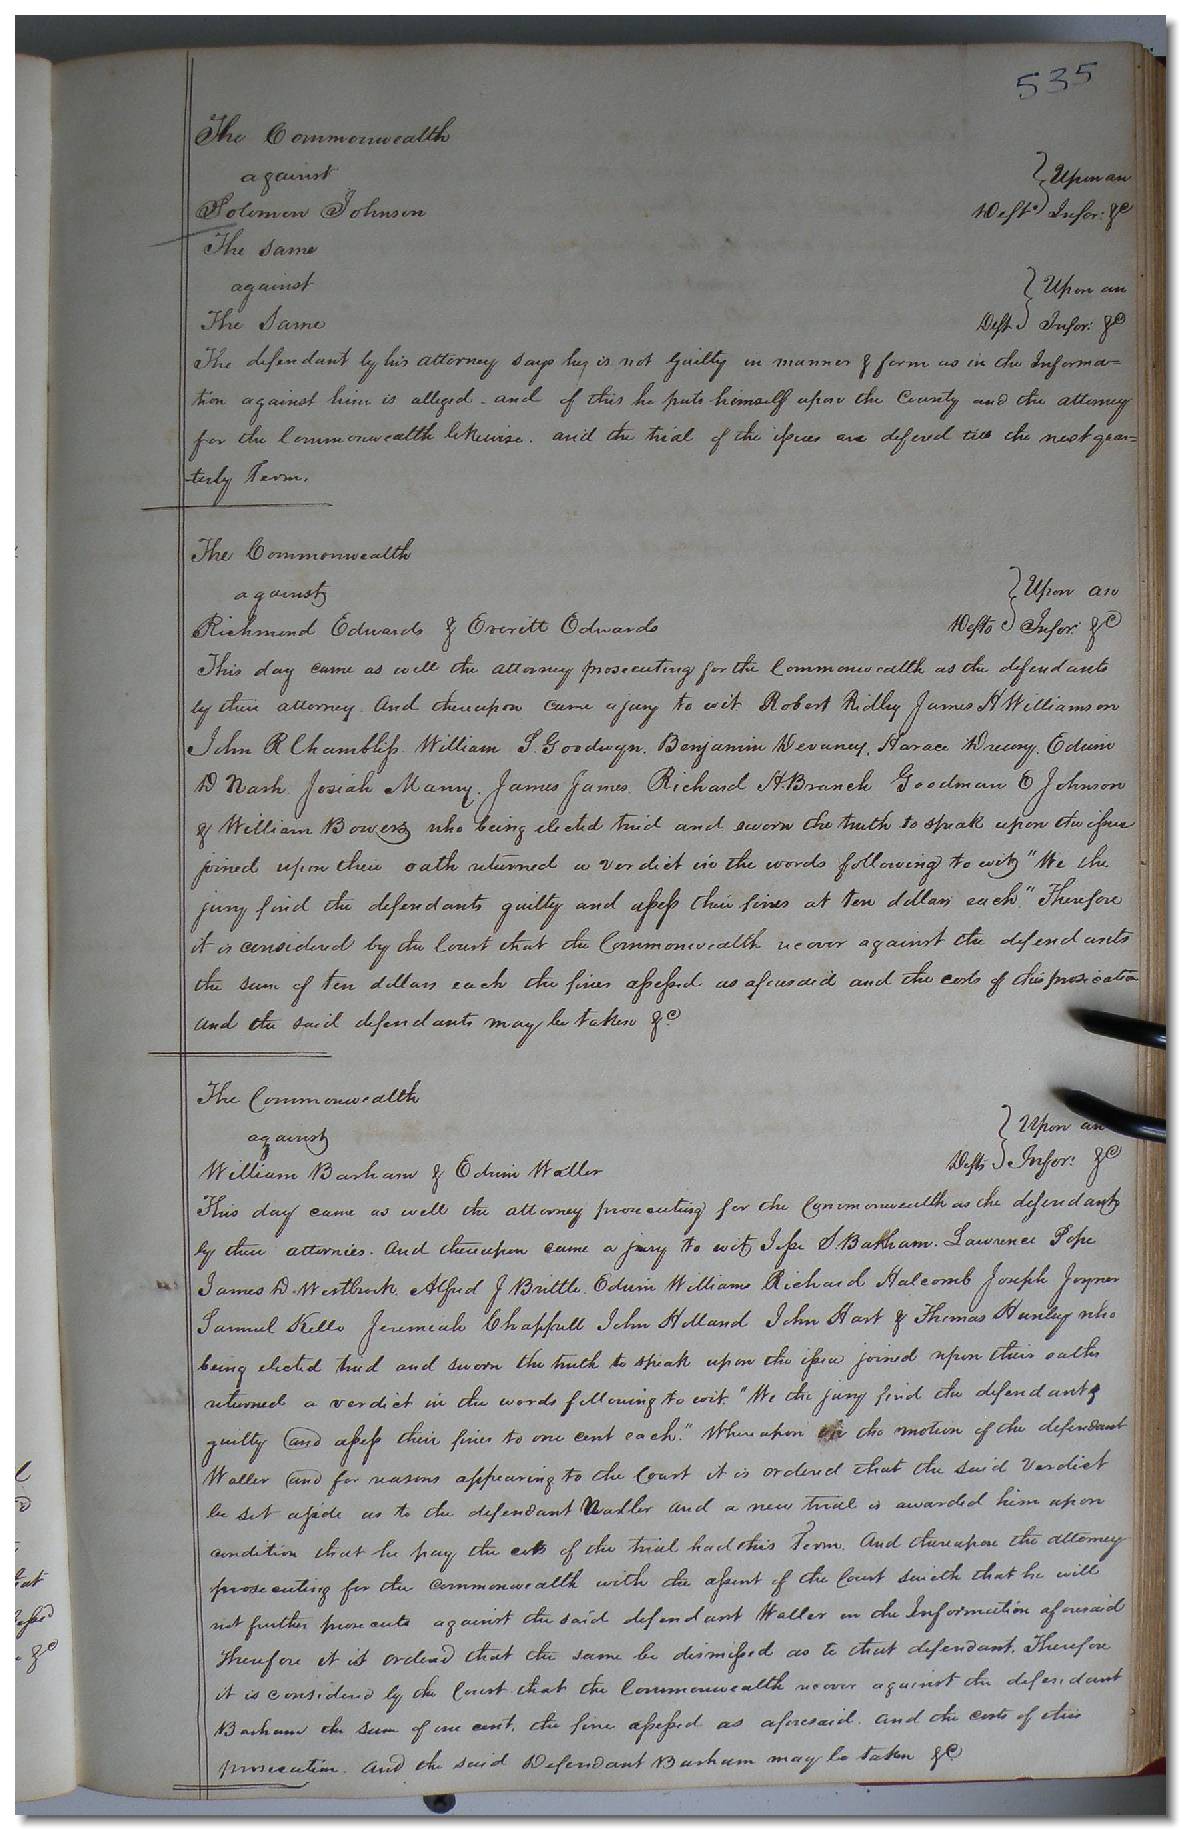 535
The Commonwealth
against } Upon an
Solomon Johnson Deft Infor: &c
The same
against } Upon an
The Same Deft Infor: &c
The defendant by his attorney says he is not guilty in manner & form as in the Informa=
tion against him is alleged and of this he puts himself upon the County and the attorney
for the Commonwealth likewise. and the trial of the issues are defered till the next quar=
terly Term.
The Commonwealth
against } Upon an
Richmond Edwards & Everitt Edwards Defts Infor: &c
This day came as well the attorney prosecuting for the Commonwealth as the defendants
by their attorney And thereupon came a jury to wit Robert Ridley James H Williamson
John R Chambliss William S. Goodwyn. Benjamin Devaney. Horace Drewry. Edwin
D Nash Josiah Manry. James James. Richard H Branch Goodman C Johnson
& William Bowers who being elected tried and sworn the truth to speak upon the issue
joined upon their oath returned a verdict in the words following to wit "We the
jury find the defendants guilty and assess their fines at ten dollars each." Therefore
it is considered by the Court that the Commonwealth recover against the defendants
the sum of ten dollars each the fines assessed as aforesaid and the costs of this prosecution
and the said defendants may be taken &c
The Commonwealth
against } Upon an
William Barham & Edwin Waller Defts Infor: &c
This day came as well the attorney prosecuting for the Commonwealth as the defendants
by their attornies. And thereupon came a jury to wit Jesse S. Barham. Lawrence Pope
James D. Westbrook Alfred J Brittle. Edwin Williams Richard Halcomb Joseph Joyner
Samuel Kello Jeremiah Chappell John Holland John Hart & Thomas who
being elected tried and sworn the truth to speak upon the issue joined upon their oaths
returned a verdict in the words following to wit. "We the jury find the defendants
guilty and assess their fines to one cent each." Whereupon on the motion of the defendant
Waller and for reasons appearing to the Court it is ordered that the said verdict
be set aside as to the defendant Waller and a new trial is awarded him upon
condition that he pay the costs of the trial had this Term. And thereupon the attorney
prosecuting for the commonwealth with the assent of the Court saieth that he will
not further prosecute against the said defendant Waller on the Information aforesaid
Therefore it is ordered that the same be dismissed as to that defendant. Therefore
it is considered by the Court that the Commonwealth recover against the defendant
Barham the sum of one cent. the fine assessed as aforesaid. and the costs of this
prosecution. And the said Defendant Barham may be taken &c